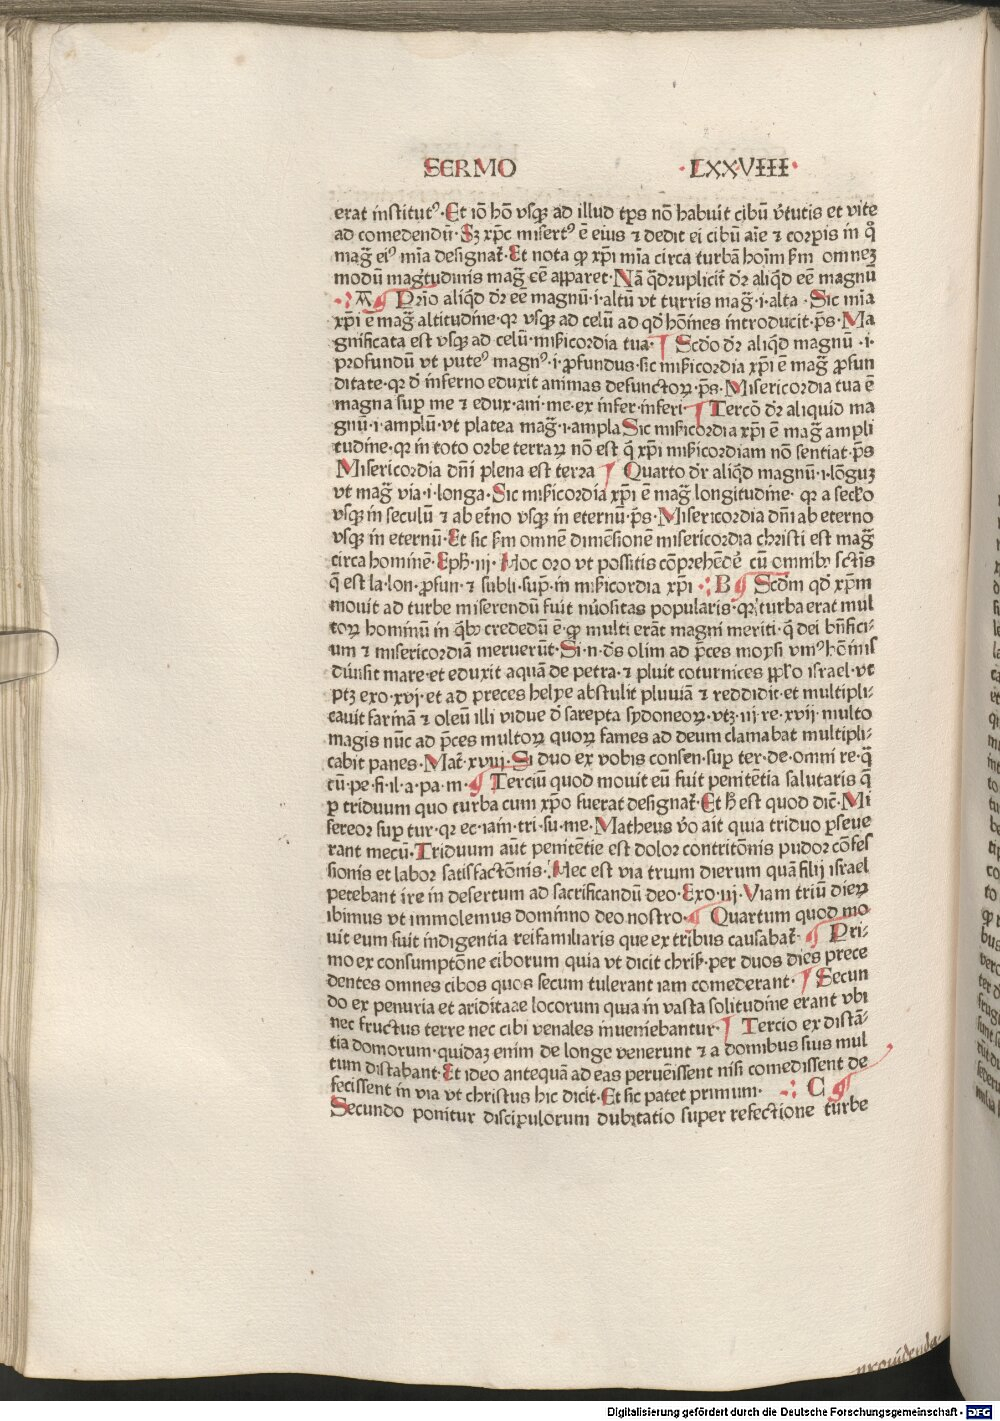 SERMO ·LXXVIIII·
erat institutꝰ·Et iō hō vsqꝫ ad illud tp̄s nō habuit cibū v̓tutis et vite
ad comedendū·Sꝫ xp̄c misertꝰ ē eius ⁊ dedit ei cibū aīe ⁊ corꝑis in q̊
mag̃ eiꝰ mīa designat᷑·Et nota ꝙ xp̄i mīa circa turbā hoīm ẜm omneꝫ
modū mag̓tudinis mag̃ cē apparet·Nā q̄drupliciť dr̄ aliq̄d eē magnū
·:A Prīo aliq̄d dr̄ eē magnū·i·altū vt turris mag̃·i·alta·Sic mīa
xp̄i ē mag̃ altitudine·qr vsqꝫ ad celū ad qd̓ hōines introducit·p̄s·Ma
gnificata est vsqꝫ ad celū·mīẜicordia tua· Scd̓o dr̄ aliq̄d magnū·i·
profundū vt puteꝰ magnꝰ·i·ꝓfundus·sic mīẜicordia xp̄i ē mag̃ ꝓfun
ditate·qr d̓ inferno eduxit animas defunctoꝝ·p̄s·Misericordia tua ē
magna suꝑ me ⁊ edux·ani·me·ex infer·inferi· Tercō dr̄ aliquid ma
gnū·i·amplū·vt platea mag̃·i·ampla Sic mīẜicordia xp̄i ē mag̃ ampli
tudine·qr in toto orbe terraꝝ nō est q̇ xp̄i mīẜicordiam nō sentiat·p̄s
Misericordia dn̄i plena est terra Quarto dr̄ aliq̄d magnū·i·lōguꝫ
vt mag̃ via·i·longa·Sic mīẜicordia xp̄i ē mag̃ longitudine·qr a secl̓o
vsqꝫ in seculū ⁊ ab et̓no vsqꝫ in eternū·p̄s·Misericordia dn̄i ab eterno
vsqꝫ in eternū·Et sic ẜm omnē dimēsionē misericordia christi est mag̃
circa hominē·Eph̓·iij·Hoc oro vt possitis cōprehēdē cū omnibꝰ sctīs
q̄ est la·lon·ꝓfun·⁊ subli·suꝑ·in mīẜicordia xp̄i·:B Scd̓m qd̓ xp̄m
mouit ad turbe miserendū fuit nūositas popularis·qr turba erat mul
toꝝ hominū in q̄bꝰ crededū ē·ꝙ multi erāt magni meriti·q̄ dei bn̄fici⸗
um ⁊ misericordiā meruerūt·Si·n·dn̄s olim ad p̄ces moysi vniꝰ hōinis
diuisit mare·et eduxit aquā de petra·⁊ pluit coturnices ppl̓o israel·vt
ptꝫ exo·xvj·et ad preces helye abstulit pluuiā ⁊ reddidit·et multipli⸗
cauit farinā ⁊ oleū illi vidue d̓ sarepta sydoneoꝝ·vtꝫ·iij·re·xvij·multo
magis nūc ad p̄ces multoꝝ quoꝝ fames ad deum clamabat multipli⸗
cabit panes·Mat̓·xviij·Si duo ex vobis consen·suꝑ ter·de·omni re·q̄
cū·pe·fi·il·a·pa·m· Terciū quod mouit eū fuit penitētia salutaris q̄
ꝑ triduum quo turba cum xp̄o fuerat designat᷑·Et h̓ est quod dic̄·Mi
sereor suꝑ tur·qr ec·iam·tri·su·me·Matheus v̓o ait quia triduo ꝑseue
rant mecū·Triduum aūt penitētie est dolor contritōnis pudor cōfes
sionis et labor satisfactōnis·Hec est via trium dierum quā filij israel
petebant ire in desertum ad sacrificandū deo·Exo·iij·Viam triū dieꝝ
ibimus vt immolemus dominno deo nostro· Quartum quod mo
uit eum fuit indigentia reifamiliaris que ex trībus causabat᷑· Pri⸗
mo ex consumptōne ciborum quia vt dicit chrīẜ·per duos dies prece
dentes omnes cibos quos secum tulerant iam comederant· Secun
do ex penuria et ariditaae locorum quia in vasta solitudine erant vbi
nec fructus terre nec cibi venales inueniebantur· Tercio ex distā⸗
tia domorum·quidaꝫ enim de longe venerunt ⁊ a domibus suis mul
tum distabant·Et ideo antequā ad eas peruēissent nisi comedissent de
fecissent in via vt christus hic dicit·Et sic patet primum· ·:C
Secundo ponitur discipulorum dubitatio super refectione turbe
Digitalisierung gefördert durch die Deutsche Forschungsgemeinschaft - DFG